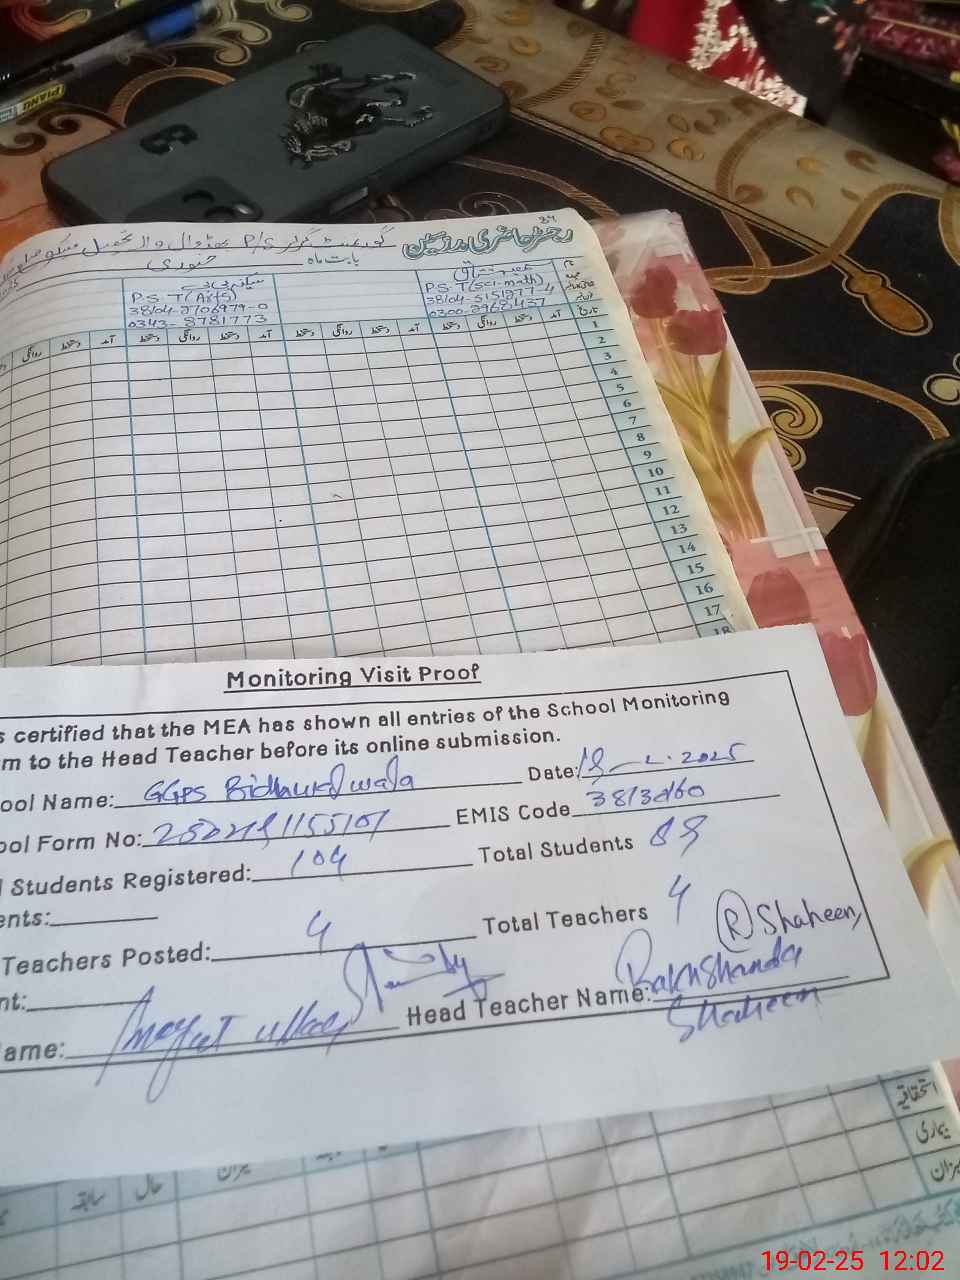 PIANO
34
رجسٹر حاضری مدرسین
گورنمنٹ گرلز P/S بھڈوال والہ تحصیل
بابت ماہ جنوری
P.S.T (Sci-math)
0300-3968437
P.S.T (Arts)
38104-2706979-0
0343-8781773
تاریخ
آمد دستخط روانگی دستخط آمد دستخط روانگی دستخط آمد دستخط روانگی
1
2
3
4
5
6
7
8
9
10
11
12
13
14
15
16
17
18
Monitoring Visit Proof
s certified that the MEA has shown all entries of the School Monitoring
m to the Head Teacher before its online submission.
ool Name: GGPS Bidhwalwala Date: 19-2-2025
ool Form No: EMIS Code
l Students Registered: 104 Total Students 89
ents:
Teachers Posted: 4 Total Teachers 4
R Shaheen
nt:
ame: Head Teacher Name: Rakhshanda
Shaheen
استحقاقیہ
بیماری
میزان
میزان حال سابقہ
19-02-25 12:02